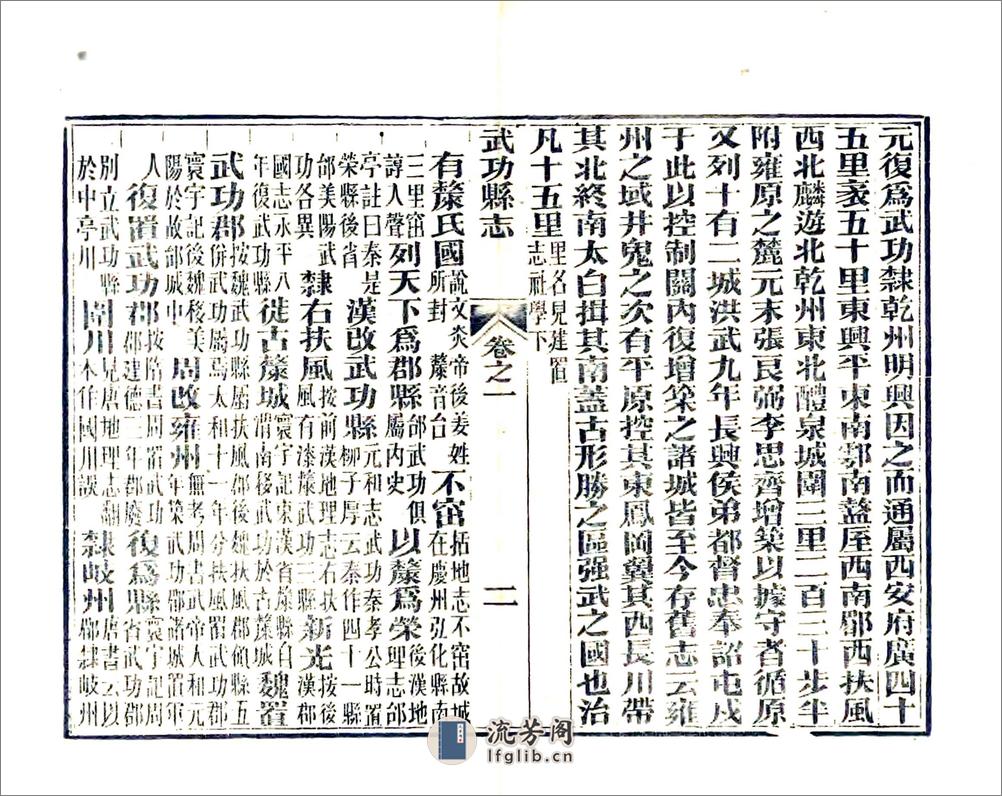 元復爲武功隸乾州明興因之而通屬西安府廣四十
五里袤五十里東興平東南鄠南盩厔西南郿西扶風
西北麟遊北乾州東北醴泉城圍三里二百三十步半
附雍原之麓元末張良弼李思齊增築以據守者循原
又列十有二城洪武九年長興侯弟都督忠奉詔屯戍
于此以控制關內復增築之諸城皆至今存舊志云雍
州之域井鬼之次有平原控其東鳳岡翼其西長川帶
其北終南太白揖其南蓋古形勝之區强武之國也治
凡十五里里名見建置志社學下
武功縣志
卷之一
二
有斄氏國說文炎帝後姜姓所封斄音台不窋括地志不窋故城在慶州弘化縣南
三里窋諄人聲列天下爲郡縣邰武功俱屬內史以斄爲榮後漢地理志邰
亭註曰秦是榮縣後省漢改武功縣元和志武功秦孝公時置柳子厚云秦作四十一縣
邰美陽武功各異隸右扶風按前漢地理志右扶風有漆斄武功三縣新光按後漢郡
國志永平八年復武功縣徙古斄城寰宇記東漢省斄縣自渭南後武功於古斄城魏置
武功郡按魏武功縣屬扶風郡後魏扶風郡領縣五併武功屬焉太和十一年分扶風置武功郡
寰宇記後魏移美陽於故邰城中周改雍州無考周書武帝天和元年築武功郡諸城置軍
人復置武功郡按隋書周置武功郡建德三年郡廢復爲縣寰宇記周省武功郡
別立武功縣於中亭川圍川見唐地理志翻本作國川誤隸岐州唐書云以郡隸岐州
流芳阁
lfglib.cn